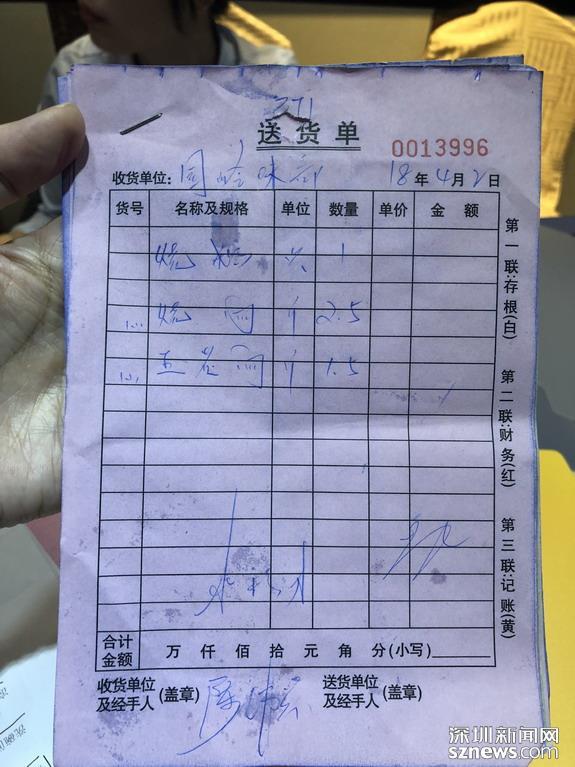 371
送货单
0013996
收货单位: 18年4月2日
货号 名称及规格 单位 数量 单价 金额
烧 只 1
烧 斤 2.5
五花肉 斤 1.5
合计金额 万 仟 佰 拾 元 角 分(小写)
收货单位及经手人(盖章) 送货单位及经手人(盖章)
第一联:存根(白)
第二联:财务(红)
第三联:记账(黄)
深圳新闻网
sznews.com